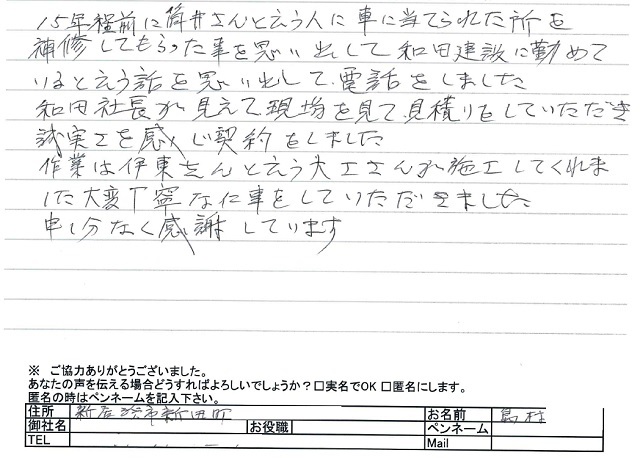 15年程前に筒井さんと云う人に車に当てられた所を
補修してもらった事を思い出して和田建設に勤めて
いると云う話を思い出して電話をしました
和田社長が見えて現場を見て見積りをしていただき
誠実さを感じ契約をしました
作業は伊東さんと云う大工さんが施工してくれま
した大変丁寧な仕事をしていただきました
申し分なく感謝しています
※ ご協力ありがとうございました。
あなたの声を伝える場合どうすればよろしいでしょうか？□実名でOK □匿名にします。
匿名の時はペンネームを記入下さい。
住所 新居浜市新田町 お名前 島村
御社名 お役職 ペンネーム
TEL Mail